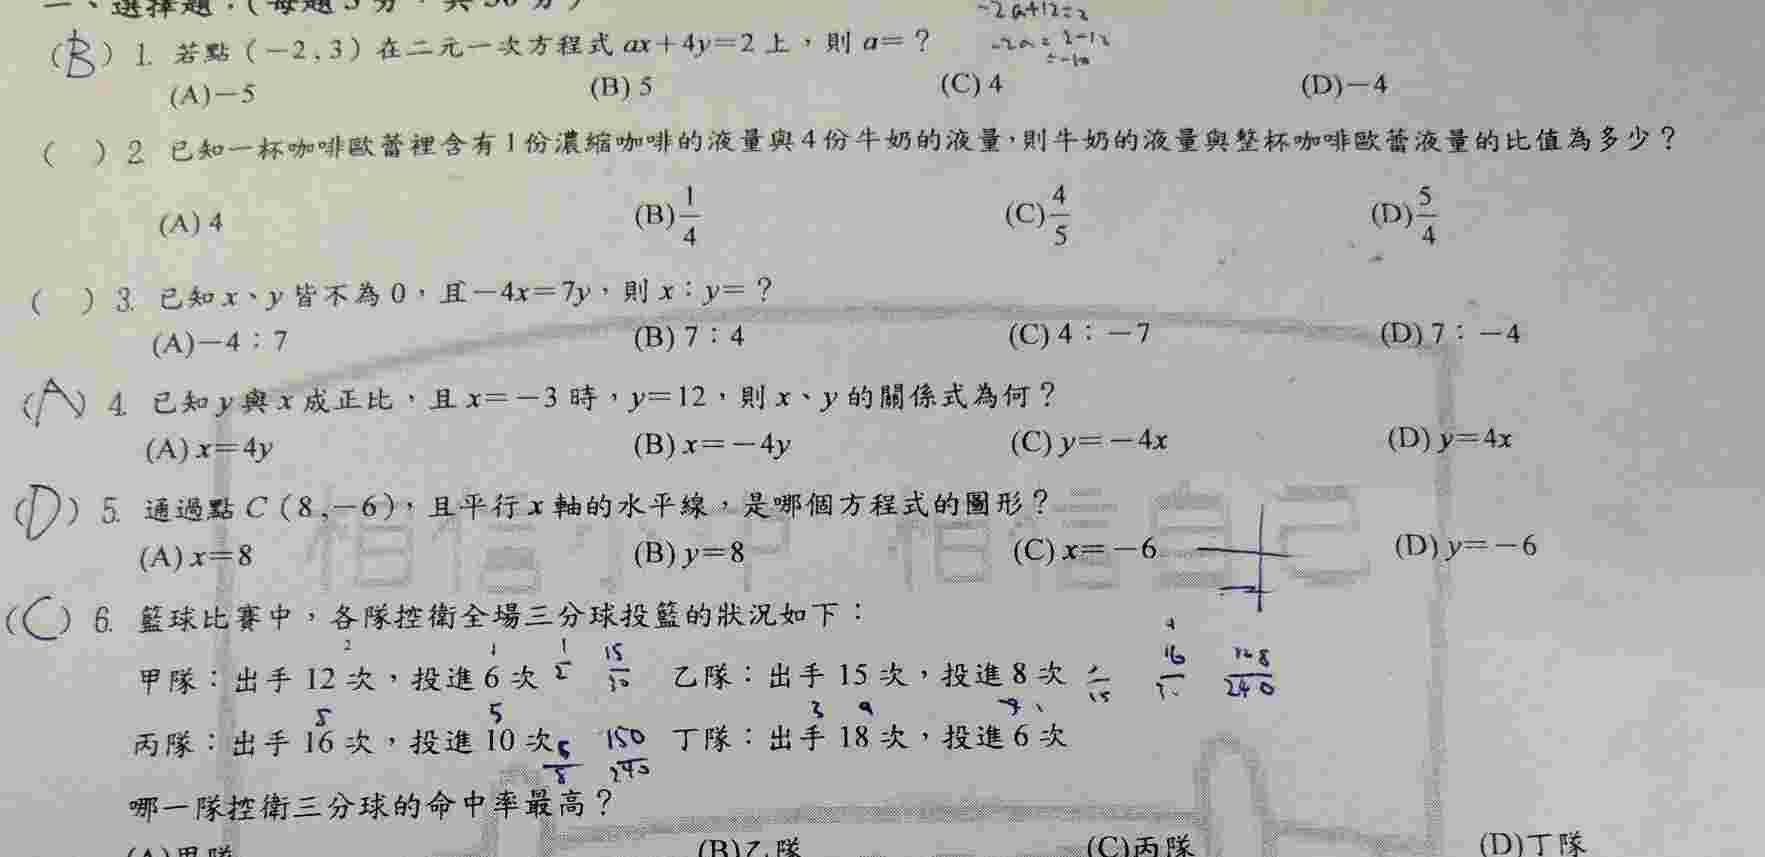 一、選擇題：(每題5分，共30分)
-2a+12=2
(B) 1. 若點(-2,3)在二元一次方程式ax+4y=2上，則a=？
-2a=2-12
=-10
(A)-5 (B) 5 (C) 4 (D)-4
( ) 2. 已知一杯咖啡歐蕾裡含有1份濃縮咖啡的液量與4份牛奶的液量，則牛奶的液量與整杯咖啡歐蕾液量的比值為多少？
(A) 4 (B) 1/4 (C) 4/5 (D) 5/4
( ) 3. 已知x、y皆不為0，且-4x=7y，則x：y=？
(A)-4：7 (B) 7：4 (C) 4：-7 (D) 7：-4
(A) 4. 已知y與x成正比，且x=-3時，y=12，則x、y的關係式為何？
(A) x=4y (B) x=-4y (C) y=-4x (D) y=4x
(D) 5. 通過點C(8,-6)，且平行x軸的水平線，是哪個方程式的圖形？
(A) x=8 (B) y=8 (C) x=-6 (D) y=-6
相信 相信自己
(C) 6. 籃球比賽中，各隊控衛全場三分球投籃的狀況如下：
甲隊：出手12次，投進6次 1/2 15/30 乙隊：出手15次，投進8次 16/30 128/240
丙隊：出手16次，投進10次 5/8 150/240 丁隊：出手18次，投進6次
哪一隊控衛三分球的命中率最高？
(A)甲隊 (B)乙隊 (C)丙隊 (D)丁隊